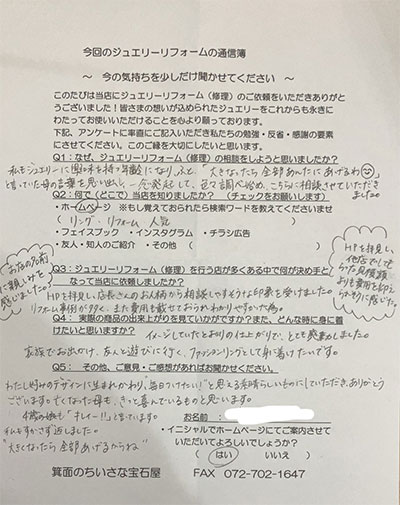 今回のジュエリーリフォームの通信簿
～ 今の気持ちを少しだけ聞かせてください ～
このたびは当店にジュエリーリフォーム（修理）のご依頼をいただきありがと
うございました！皆さまの想いが込められたジュエリーをこれからも永きに
わたってお使いいただけることを心より願っております。
下記、アンケートに率直にご記入いただき私たちの勉強・反省・感謝の要素
にさせてください。このご縁を大切にしたいと思います。
Q1：なぜ、ジュエリーリフォーム（修理）の相談をしようと思いましたか？
私もジュエリーに興味を持つ年齢になり、ふと、「大きくなったら全部あんたにあげるわ」と
言っていた母の言葉を思い出し、一念発起して、色々調べ始め、こちらに相談させていただき
ました。
Q2：何で（どこで）当店を知りましたか？ （チェックをお願いします）
・ホームページ ※もし覚えておられたら検索ワードを教えてくださいませ
（ リング リフォーム 人気 ）
・フェイスブック ・インスタグラム ・チラシ広告
・友人・知人のご紹介 ・その他（ ）
お店の名前
に親しみを
感じました。
Q3：ジュエリーリフォーム（修理）を行う店が多くある中で何が決め手と
なって当店に依頼しましたか？
HPを拝見し、店長さんのお人柄から相談しやすそうな印象を受けました。
リフォーム事例が多く、また費用も載せておられわかりやすかった為。
HPを拝見し、
他店でしても
らった見積額
よりも費用を抑え
られそうに感じた。
Q4： 実際の商品の出来上がりを見ていかがですか？また、どんな時に身に着
けたいと思いますか？
イメージしていたとおりの仕上がりで、とても感動しました。
家族でお出かけ、友人と遊びに行く、ファッションリングとして身に着けたいです。
Q5：その他、ご意見・ご感想があればお聞かせください。
わたし好みのデザインに生まれかわり、"毎日つけたい！"と思える素晴らしいものにしていただき、ありがとう
ございます。亡くなった母も、きっと喜んでいるものと思います。
4歳の娘も"キレイー！！"と言っています。
私もすかさず返しました。
"大きくなったら全部あげるからね"
お名前：
・イニシャルでホームページにてご案内させて
いただいてよろしいでしょうか？
（ はい いいえ ）
箕面のちいさな宝石屋 FAX 072-702-1647